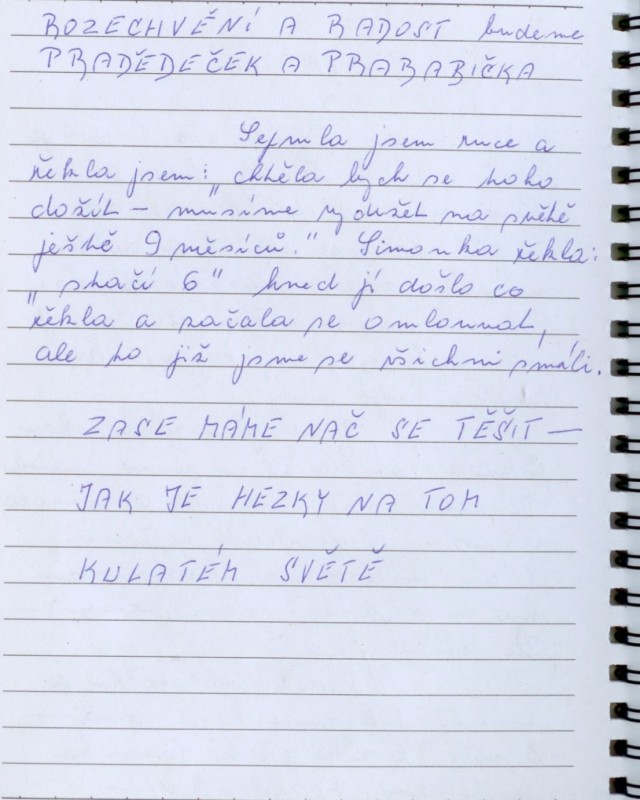 ROZECHVĚNÍ A RADOST budeme
PRADĚDEČEK A PRABABIČKA
Sepnula jsem ruce a
řekla jsem: „chtěla bych se toho
dožít – musíme vydržet na světě
ještě 9 měsíců." Simonka řekla:
„stačí 6" hned jí došlo co
řekla a začala se omlouvat,
ale to již jsme se všichni smáli.
ZASE MÁME NAČ SE TĚŠIT –
JAK JE HEZKY NA TOM
KULATÉM SVĚTĚ